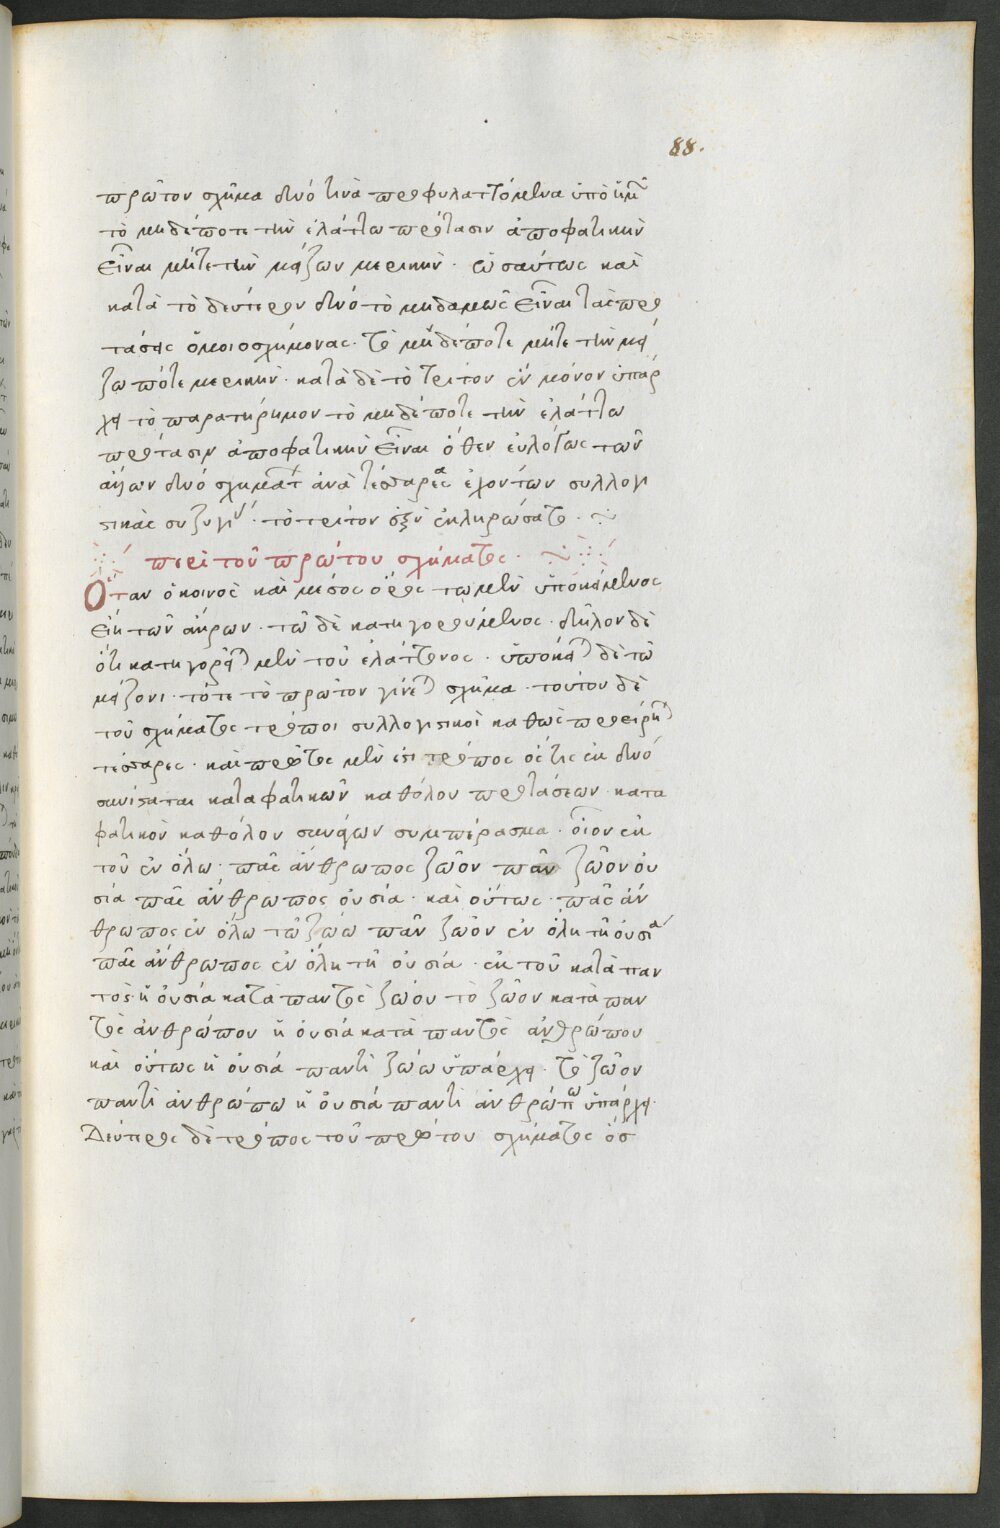 88.
πρῶτον σχῆμα δυό τινὰ προφυλαττόμενα ὑπὸ ἡμῶ
τὸ μηδέποτε τὴν ἐλάττω πρότασιν ἀποφατικὴν
εἶναι μήτε τὴν μείζων μερικήν · ὡσαύτως καὶ
κατὰ τὸ δεύτερον δυό τὸ μηδαμῶς εἶναι τὰς προ
τάσεις ὁμοιοσχήμονας · τὸ μὴδέποτε μήτε τὴν μεί
ζω πότε μερικήν · κατὰ δὲ τὸ τρίτον ἐν μόνον ὑπάρ
χει τὸ παρατηρήμον τὸ μηδέποτε τὴν ἐλάττω
πρότασιν ἀποφατικὴν εἶναι ὅθεν εὐλόγως τῶν
ἄλλων δυό σχημάτ ἀνὰ τέσσαρας ἐχοντων συλλογι
στικὰς συζυγί · τὸ τρίτον ἐξ ἐκληρώσατο ·
περὶ τοῦ πρώτου σχήματος ·
Ὅταν ὁ κοινὸς καὶ μέσος ὅρος τῶ μὲν ὑποκείμενος
εἴη τῶν ἄκρων · τῶ δὲ κατηγορούμενος · δῆλον δὲ
ὅτι κατηγορεῖ μὲν τοῦ ἐλάττονος · ὑπόκει δὲ τῶ
μείζονι · τότε τὸ πρῶτον γίνε σχῆμα · τούτου δὲ
τοῦ σχήματος τρόποι συλλογιστικοὶ καθὼς προείρη
τέσσαρες · καὶ πρῶτος μὲν ἐστι τρόπος ὅςτις ἐκ δυό
συνίσταται καταφατικῶν καθόλου προτάσεων · κατα
φατικὸν καθόλου συνάγων συμπέρασμα · οἷον ἐκ
τοῦ ἐν ὅλω · πᾶς ἄνθρωπος ζῶον πᾶν ζῶον οὐ
σία πᾶς ἄνθρωπος οὐσία · καὶ οὕτως · πᾶς ἄν
θρωπος ἐν ὅλω τῶ ζώω πᾶν ζῶον ἐν ὅλη τῆ οὐσία
πᾶς ἄνθρωπος ἐν ὅλη τῆ οὐσία · ἐκ τοῦ κατὰ παν
τὸς ἡ οὐσία κατὰ παντὸς ζώου τὸ ζῶον κατὰ παν
τὸς ἀνθρώπου ἡ οὐσία κατὰ παντὸς ἀνθρώπου
καὶ οὕτως ἡ οὐσία παντὶ ζώω ὑπάρχει · τὸ ζῶον
παντὶ ἀνθρώπω ἡ οὐσία παντὶ ἀνθρώπω ὑπάρχει ·
Δεύτερος δὲ τρόπος τοῦ πρώτου σχήματος ὅσ